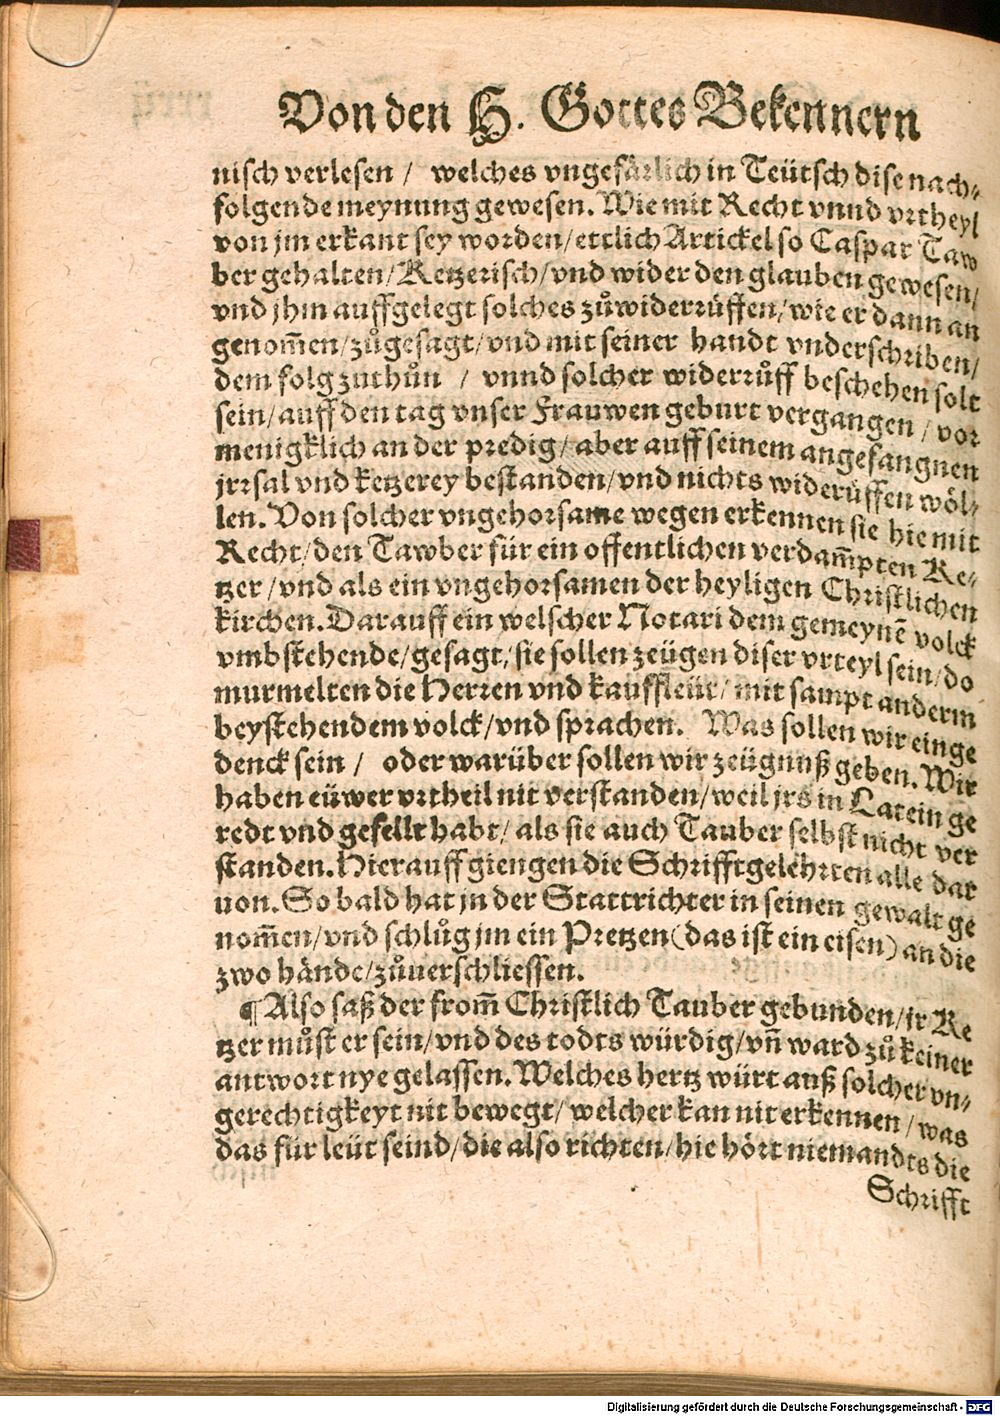 Von den H. Gottes Bekennern
nisch verlesen / welches vngefärlich in Teütsch dise nach⸗
folgende meynung gewesen. Wie mit Recht vnnd vrtheyl
von jm erkant sey worden/ettlich Artickel so Caspar Taw
ber gehalten/Ketzerisch/vnd wider den glauben gewesen/
vnd jhm auffgelegt solches zůwiderrüffen/wie er dann an
genom̄en/zůgesagt/vnd mit seiner handt vnderschriben/
dem folg zuthůn / vnnd solcher widerrůff beschehen solt
sein/auff den tag vnser Frauwen geburt vergangen / vor
menigklich an der predig/aber auff seinem angefangnen
jrrsal vnd ketzerey bestanden/vnd nichts widerüffen wöl⸗
len. Von solcher vngehorsame wegen erkennen sie hie mit
Recht/den Tawber für ein offentlichen verdam̄pten Ke⸗
tzer/vnd als ein vngehorsamen der heyligen Christlichen
kirchen. Darauff ein welscher Notari dem gemeynē volck
vmbstehende/gesagt/sie sollen zeügen diser vrteyl sein/do
murmelten die Herren vnd kauffleüt/mit sampt anderm
beystehendem volck/vnd sprachen. Was sollen wir einge
denck sein / oder warüber sollen wir zeügnuß geben. Wir
haben eüwer vrtheil nit verstanden/weil jrs in Latein ge
redt vnd gefellt habt/als sie auch Tauber selbst nicht ver
standen. Hierauff giengen die Schrifftgelehrten alle dar
uon. So bald hat jn der Stattrichter in seinen gewalt ge
nom̄en/vnd schlůg jm ein Pretzen (das ist ein eisen) an die
zwo hände/zůuerschliessen.
¶ Also saß der from̄ Christlich Tauber gebunden/jr Ke
tzer můst er sein/vnd des todts würdig/vn̄ ward zů keiner
antwort nye gelassen. Welches hertz würt auß solcher vn⸗
gerechtigkeyt nit bewegt/welcher kan nit erkennen/was
das für leüt seind/die also richten/hie hört niemandts die
Schrifft
Digitalisierung gefördert durch die Deutsche Forschungsgemeinschaft - DFG